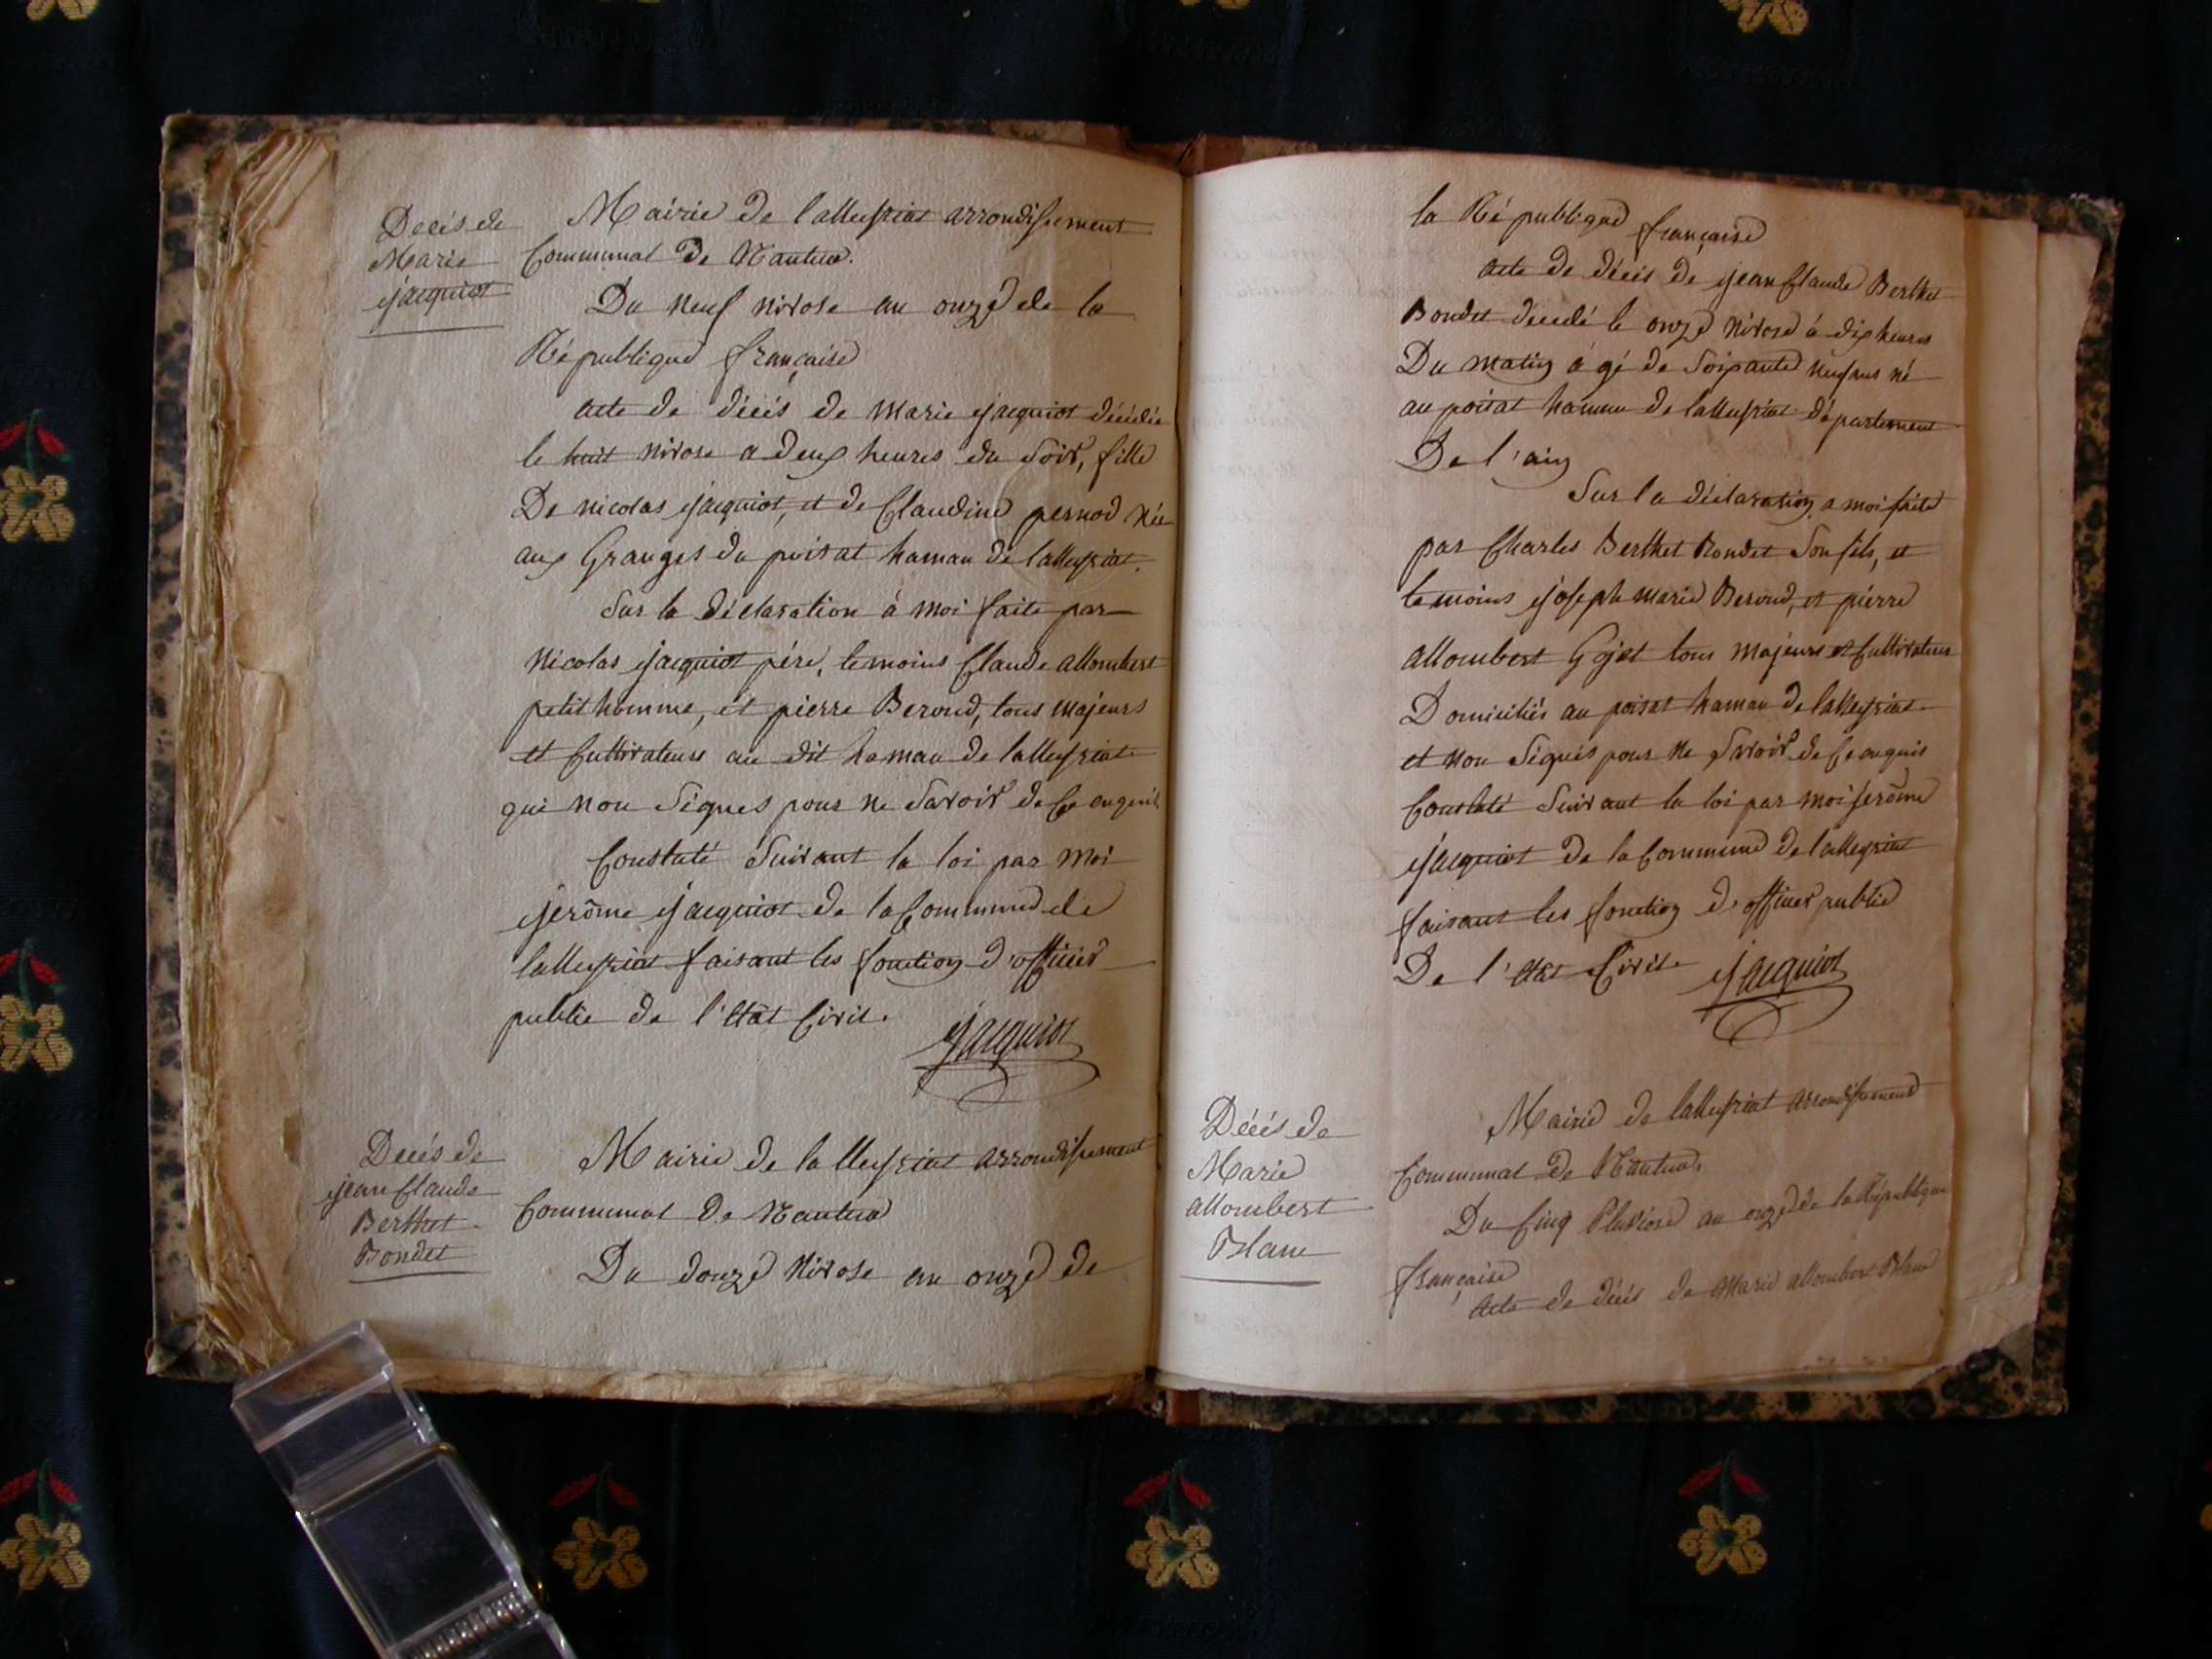 Decés de
Marie
jacquiot
Mairie de lalleyriat arrondissement
Communal de Nantua.
Du neuf nivose an onze de la
République française
acte de décés de marie jacquiot décédée
le huit nivose a deux heures du soir, fille
De nicolas jacquiot, et de Claudine pernod née
aux Granges du poisat hamau de lalleyriat.
Sur la déclaration à moi faite par
nicolas jacquiot pére, temoins Claude allombert
petit homme, et pierre Beroud, tous majeurs
et Cultivateurs au dit hamau de lalleyriat
qui non signes pour ne savoir de ce enquis
Constaté suivant la loi par moi
jerôme jacquiot de la Commune de
lalleyriat faisant les fonction d'officier
public de l'état Civil.
jacquiot
Decés de
jean Claude
Berthet
Bondet
Mairie de lalleyriat arrondissement
Communal de Nantua
Du douze nivose an onze de
la République française
acte de décés de jean Claude Berthet
Bondet decedé le onze nivose à dix heures
Du matin agé de soixante neuf ans né
au poisat hamau de lalleyriat département
De l'ain
Sur la déclaration a moi faite
par Charles Berthet Bondet son fils, et
temoins joseph marie Beroud, et pierre
allombert Gojet tous majeurs et Cultivateurs
Domiciliés au poisat hamau de lalleyriat
et non signés pour ne savoir de ce enquis
Constaté suivant la loi par moi jerôme
jacquiot de la Commune de lalleyriat
faisant les fonction d'officier public
De l'état Civil jacquiot
Décés de
Marie
allombert
Blanc
Mairie de lalleyriat arrondissement
Communal de Nantua.
Du Cinq Pluviose an onze de la République
française
acte de décés de marie allombert Blanc